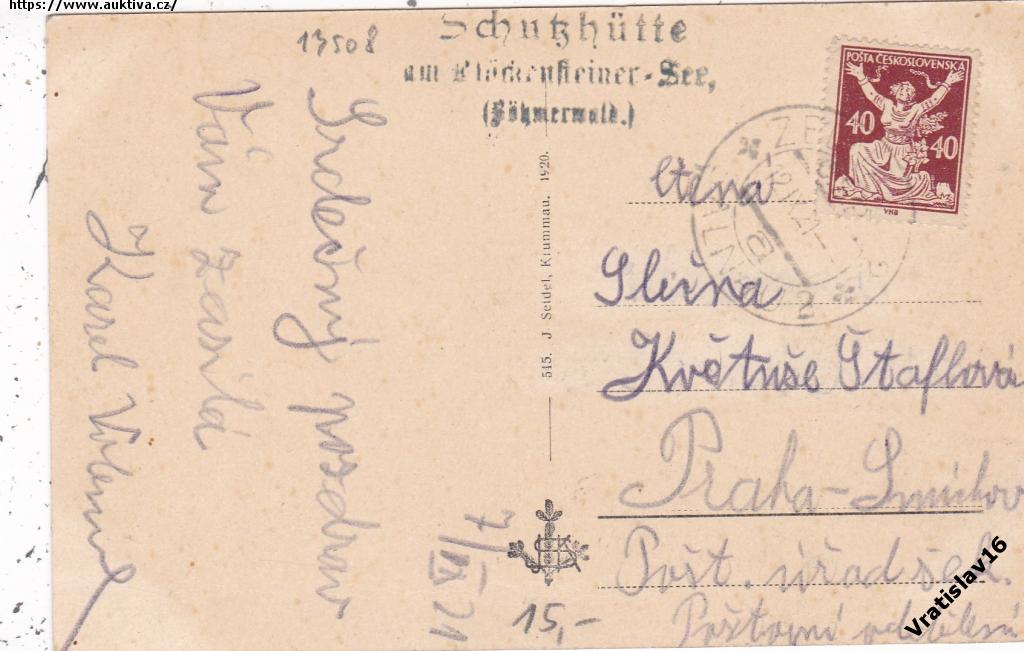 https://www.auktiva.cz/
13508
Schutzhütte
am Plöckensteiner-See,
(Böhmerwald.)
POŠTA ČESKOSLOVENSKA
40
40
Srdečný pozdrav
Vám zasílá
Karel
7/IX 21
545. J. Seidel, Krummau. 1920.
15,-
ctěná
Slečna
Květuše Štaflová
Praha-Smíchov
Pošt. úřad šek.
Poštovní oddělení
Vratislav16